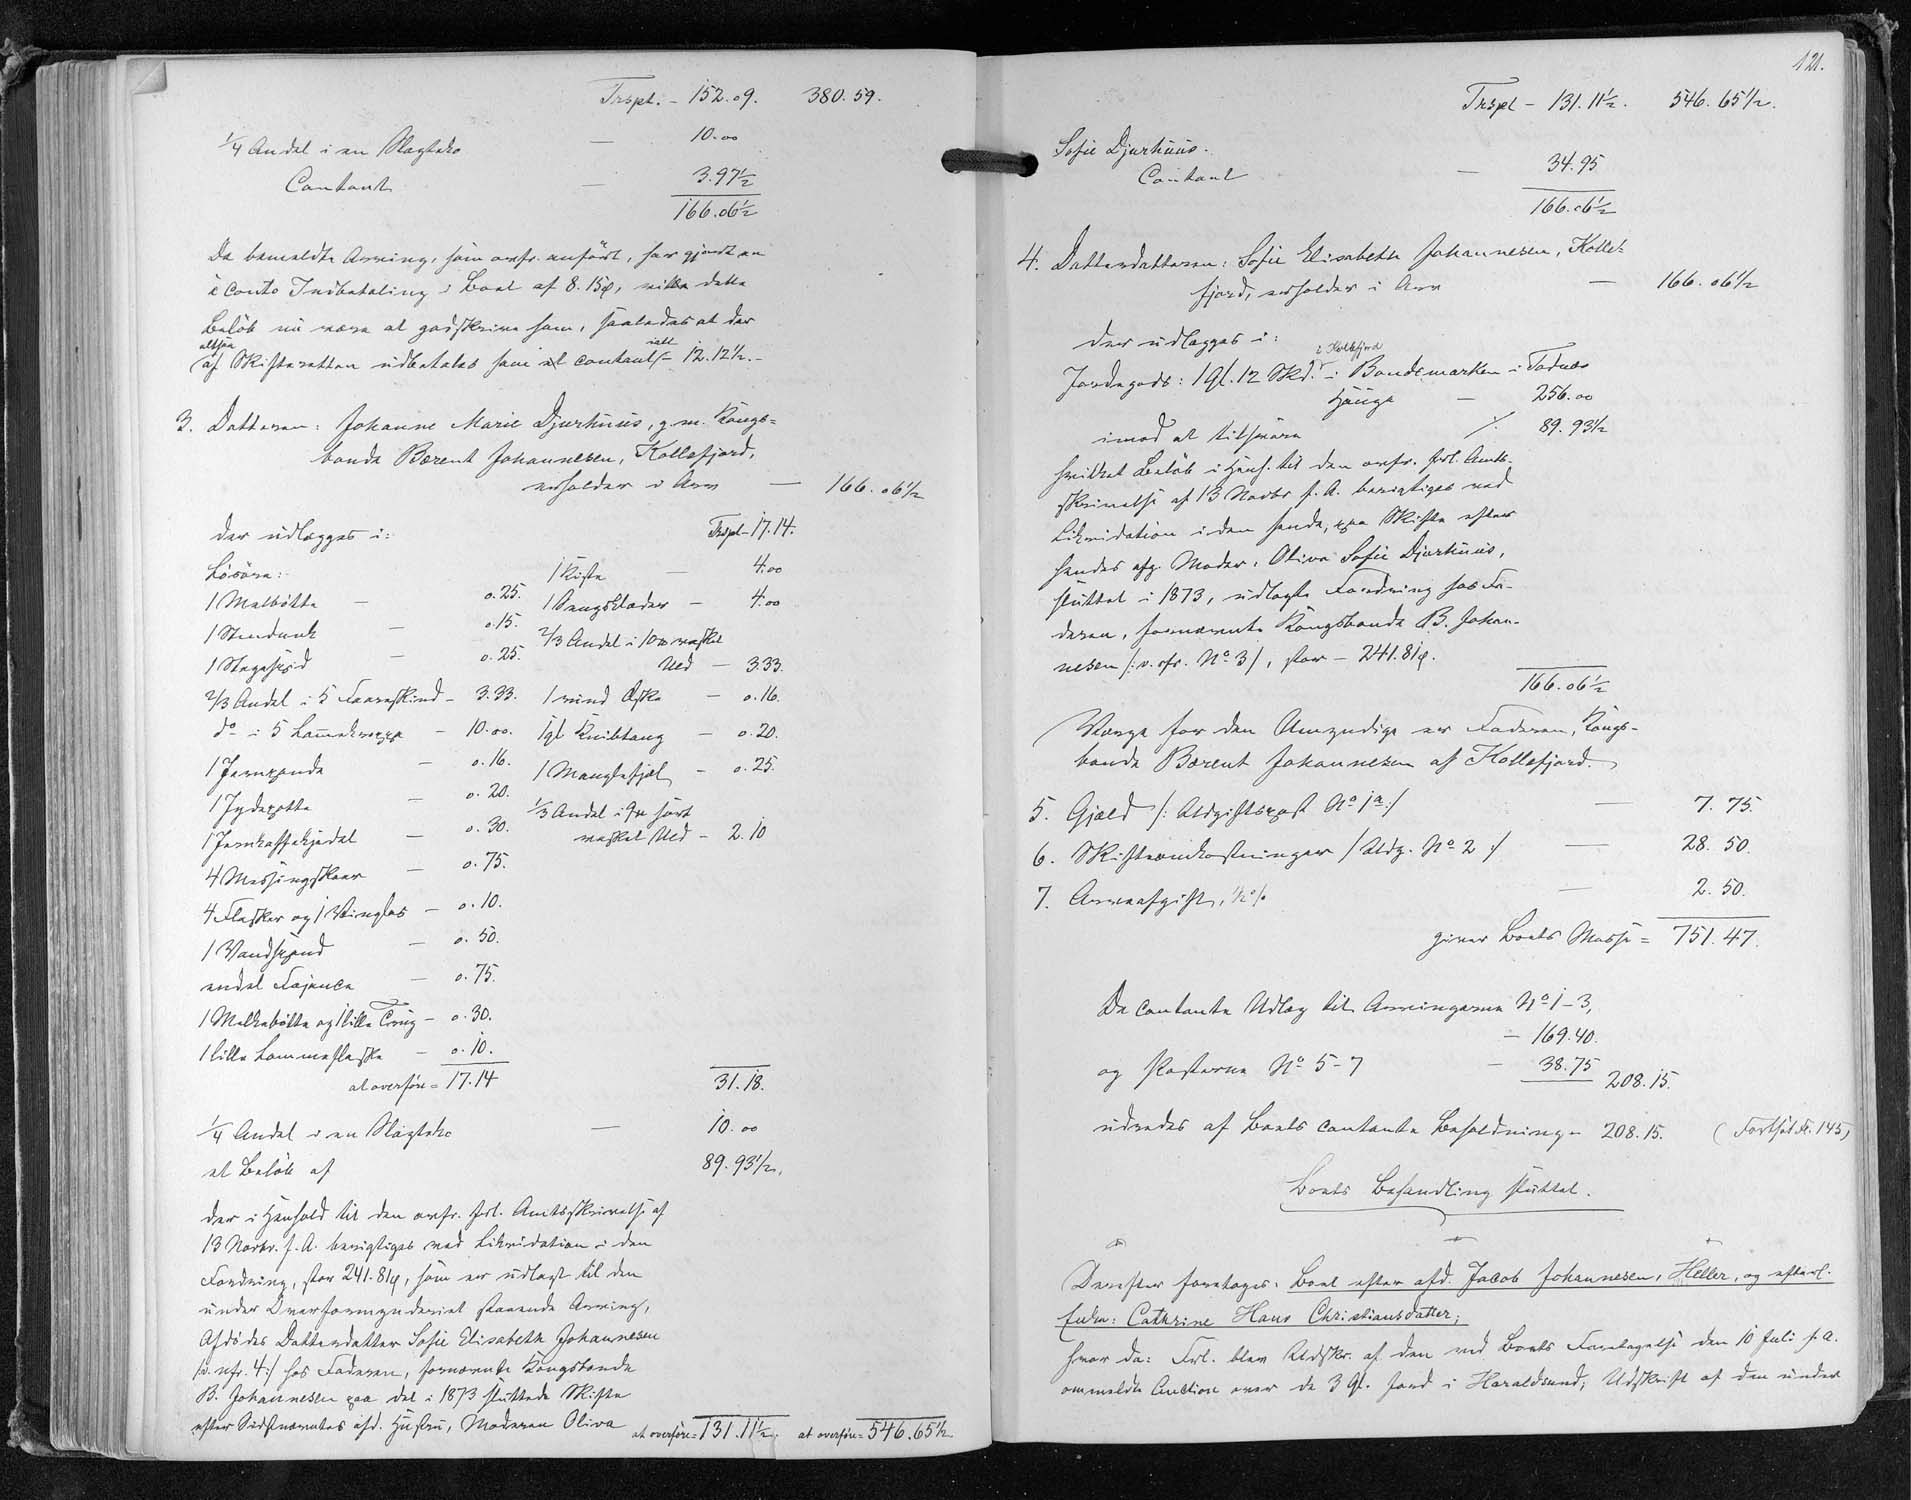 Trspt. - 152.09. 380.59.
1/4 Andel i en Slagteko — 10.00
Contant — 3.97½
166.06½
Da bemeldte Arving, som ovfr. anført, har gjort en
à Conto Indbetaling i Boet af 8.15ø, vilde dette
Beløb nu være at godskrive ham, saaledes at der
altsaa
af Skifteretten udbetales ham et contant /= 12.12½.-
ialt
3. Datteren: Johanne Marie Djurhuus, g. m. Kongs=
bonde Bærent Johannesen, Kollefjord,
erholder i Arv — 166.06½
der udlægges i:
Løsøre:
1 Malbøtte — 0.25.
1 Stendunk — 0.15.
1 Stegespid — 0.25.
2/3 Andel i 5 Faareskind - 3.33.
do i 5 Lammekroppe - 10.00.
1 Jernpande — 0.16.
1 Jydepotte — 0.20.
1 Jernkaffekjedel — 0.30.
4 Messingskeer — 0.75.
4 Flasker og 1 Vinglas - 0.10.
1 Vandspand — 0.50.
endel Fajance — 0.75.
1 Melkebøtte og 1 lille Trug - 0.30.
1 lille Lommeflaske - 0.10.
at overføre = 17.14
Trspt - 17.14.
1 Kiste — 4.00
1 Sengeklæder - 4.00
2/3 Andel i 10 vasket
Uld - 3.33.
1 rund Æske - 0.16.
1 gl Knibtang - 0.20.
1 Manglefjel - 0.25.
1/3 Andel i 9 sort
vasket Uld - 2.10
31.18.
1/4 Andel i en Slagteko — 10.00
et Beløb af 89.93½.
der i Henhold til den ovfr. frl. Amtsskrivelse af
13 Novbr. f. A. berigtiges ved Likvidation i den
Fordring, stor 241.81ø, som er udlagt til den
under Overformynderiet staaende Arving,
Afdødes Datterdatter Sofie Elisabeth Johannesen
/:v. nfr. 4:/ hos Faderen, fornævnte Kongsbonde
B. Johannesen paa det i 1873 sluttede Skifte
efter Sidstnævntes afd. Hustru, Moderen Oliva
at overføre = 131.11½. at overføre = 546.65½
121.
Trspt - 131.11½. 546.65½.
Sofie Djurhuus.
Contant — 34.95
166.06½
4. Datterdatteren: Sofie Elisabeth Johannesen, Kolle-
fjord, erholder i Arv — 166.06½
der udlægges i:
i Kollefjord
Jordegods: 1 Gl. 12 Skd. i Bondemarken i Todnes
Hauge — 256.00
imod at tilsvare ./. 89.93½
hvilket Beløb i Henh. til den ovfr. frl. Amts-
skrivelse af 13 Novbr f. A. berigtiges ved
Likvidation i den hende, paa Skifte efter
hendes afg. Moder, Oliva Sofie Djurhuus,
sluttet i 1873, udlagte Fordring hos Fa-
deren, fornævnte Kongsbonde B. Johan-
nesen /:v. ofr. No 3/, stor - 241.81ø.
166.06½
Værge for den Umyndige er Faderen, Kongs-
bonde Bærent Johannesen af Kollefjord.
5. Gjæld /: Udgiftspost No 1a:/ — 7.75.
6. Skifteomkostninger /Udg. No 2:/ — 28.50.
7. Arveafgift, ½% — 2.50.
giver Boets Masse = 751.47.
De contante Udlæg til Arvingerne No 1-3,
- 169.40.
og Posterne No 5-7 - 38.75 208.15.
udredes af Boets contante Beholdning = 208.15. (Fortsat Fol. 145)
Boets Behandling sluttet.
Derefter foretoges: Boet efter afd. Jacob Johannesen, Heller, og efterl.
Enke: Cathrine Hans Christiansdatter;
hvor da: Frl. blev Udskr. af den ved Boets Foretagelse den 10 Juli f. A.
ommeldte Auction over de 3 Gl. Jord i Haraldsund; Udskrift af den under